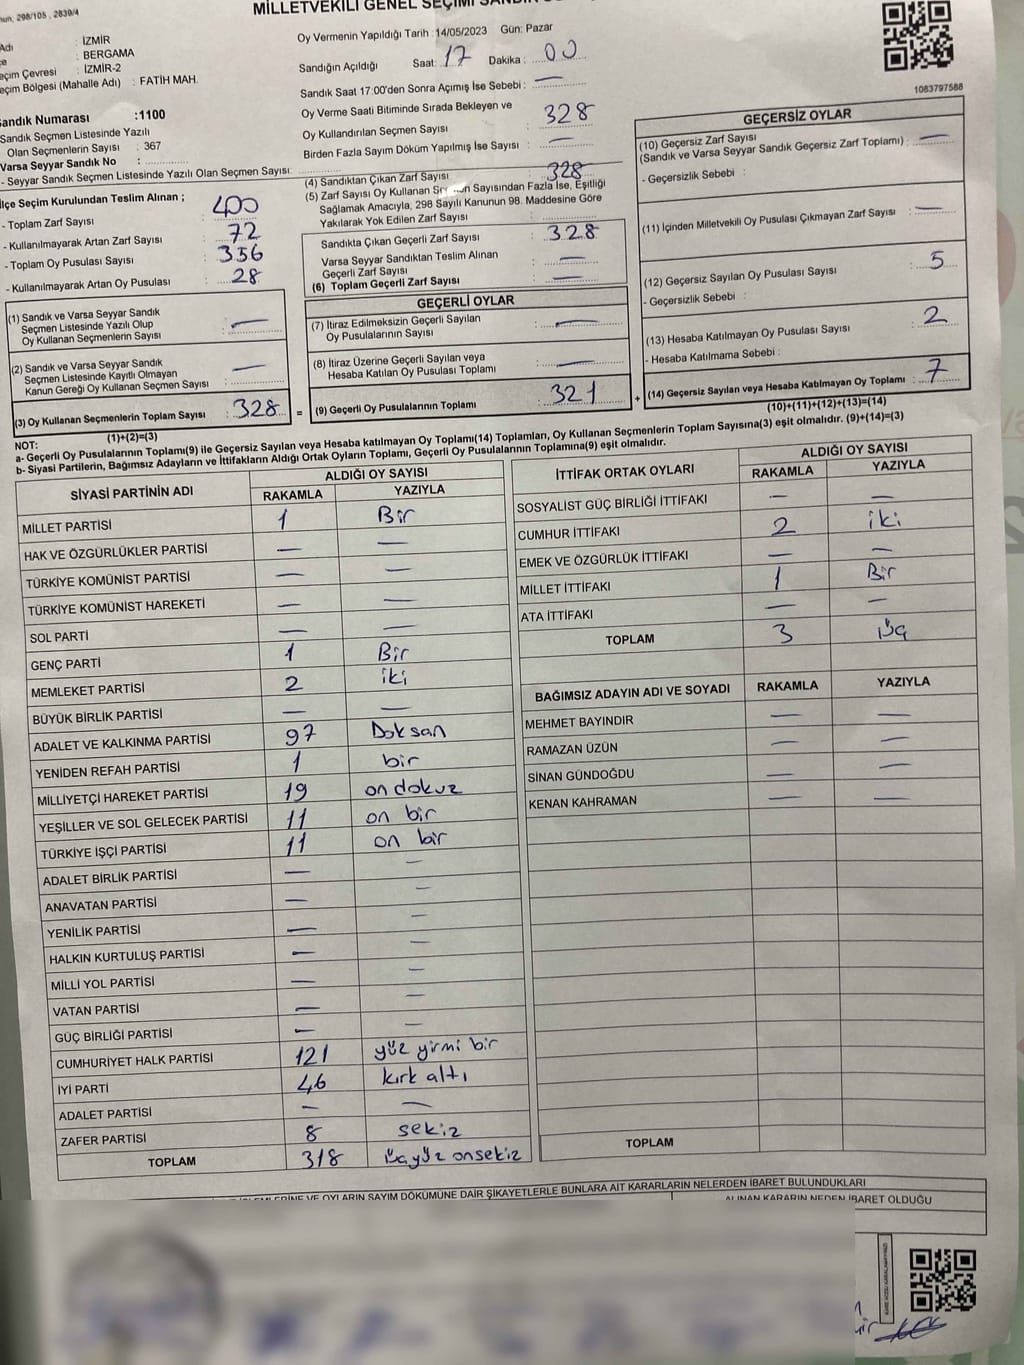 nun, 298/105 , 2839/4
MİLLETVEKİLİ GENEL SEÇİMİ
Adı : İZMİR
: BERGAMA
eçim Çevresi : İZMİR-2
eçim Bölgesi (Mahalle Adı) : FATİH MAH.
Sandık Numarası :1100
Sandık Seçmen Listesinde Yazılı
Olan Seçmenlerin Sayısı : 367
Varsa Seyyar Sandık No :
- Seyyar Sandık Seçmen Listesinde Yazılı Olan Seçmen Sayısı:
İlçe Seçim Kurulundan Teslim Alınan ;
- Toplam Zarf Sayısı : 400
- Kullanılmayarak Artan Zarf Sayısı : 72
- Toplam Oy Pusulası Sayısı : 356
- Kullanılmayarak Artan Oy Pusulası : 28
(1) Sandık ve Varsa Seyyar Sandık
Seçmen Listesinde Yazılı Olup
Oy Kullanan Seçmenlerin Sayısı : —
(2) Sandık ve Varsa Seyyar Sandık
Seçmen Listesinde Kayıtlı Olmayan
Kanun Gereği Oy Kullanan Seçmen Sayısı : —
(3) Oy Kullanan Seçmenlerin Toplam Sayısı : 328 =
(1)+(2)=(3)
Oy Vermenin Yapıldığı Tarih :14/05/2023 Gün: Pazar
Sandığın Açıldığı Saat: 17 Dakika : 00
Sandık Saat 17:00'den Sonra Açımış İse Sebebi : —
Oy Verme Saati Bitiminde Sırada Bekleyen ve
Oy Kullandırılan Seçmen Sayısı : 328
Birden Fazla Sayım Döküm Yapılmış İse Sayısı : —
(4) Sandıktan Çıkan Zarf Sayısı : 328
(5) Zarf Sayısı Oy Kullanan Sayısından Fazla İse, Eşitliği
Sağlamak Amacıyla, 298 Sayılı Kanunun 98. Maddesine Göre
Yakılarak Yok Edilen Zarf Sayısı :
Sandıkta Çıkan Geçerli Zarf Sayısı : 328
Varsa Seyyar Sandıktan Teslim Alınan
Geçerli Zarf Sayısı : —
(6) Toplam Geçerli Zarf Sayısı : —
GEÇERLİ OYLAR
(7) İtiraz Edilmeksizin Geçerli Sayılan
Oy Pusulalarının Sayısı : —
(8) İtiraz Üzerine Geçerli Sayılan veya
Hesaba Katılan Oy Pusulası Toplamı : —
(9) Geçerli Oy Pusulalarının Toplamı : 321 +
1083797588
GEÇERSİZ OYLAR
(10) Geçersiz Zarf Sayısı
(Sandık ve Varsa Seyyar Sandık Geçersiz Zarf Toplamı) : —
- Geçersizlik Sebebi :
(11) İçinden Milletvekili Oy Pusulası Çıkmayan Zarf Sayısı : —
(12) Geçersiz Sayılan Oy Pusulası Sayısı : 5
- Geçersizlik Sebebi :
(13) Hesaba Katılmayan Oy Pusulası Sayısı : 2
- Hesaba Katılmama Sebebi :
(14) Geçersiz Sayılan veya Hesaba Katılmayan Oy Toplamı : 7
(10)+(11)+(12)+(13)=(14)
NOT:
a- Geçerli Oy Pusulalarının Toplamı(9) ile Geçersiz Sayılan veya Hesaba katılmayan Oy Toplamı(14) Toplamları, Oy Kullanan Seçmenlerin Toplam Sayısına(3) eşit olmalıdır. (9)+(14)=(3)
b- Siyasi Partilerin, Bağımsız Adayların ve İttifakların Aldığı Ortak Oyların Toplamı, Geçerli Oy Pusulalarının Toplamına(9) eşit olmalıdır.
SİYASİ PARTİNİN ADI ALDIĞI OY SAYISI
RAKAMLA YAZIYLA
MİLLET PARTİSİ 1 Bir
HAK VE ÖZGÜRLÜKLER PARTİSİ — —
TÜRKİYE KOMÜNİST PARTİSİ — —
TÜRKİYE KOMÜNİST HAREKETİ — —
SOL PARTİ — —
GENÇ PARTİ 1 Bir
MEMLEKET PARTİSİ 2 iki
BÜYÜK BİRLİK PARTİSİ — —
ADALET VE KALKINMA PARTİSİ 97 Doksan
YENİDEN REFAH PARTİSİ 1 bir
MİLLİYETÇİ HAREKET PARTİSİ 19 on dokuz
YEŞİLLER VE SOL GELECEK PARTİSİ 11 on bir
TÜRKİYE İŞÇİ PARTİSİ 11 on bir
ADALET BİRLİK PARTİSİ — —
ANAVATAN PARTİSİ — —
YENİLİK PARTİSİ — —
HALKIN KURTULUŞ PARTİSİ — —
MİLLİ YOL PARTİSİ — —
VATAN PARTİSİ — —
GÜÇ BİRLİĞİ PARTİSİ — —
CUMHURİYET HALK PARTİSİ 121 yüz yirmi bir
İYİ PARTİ 46 kırk altı
ADALET PARTİSİ — —
ZAFER PARTİSİ 8 sekiz
TOPLAM 318 üçyüz onsekiz
İTTİFAK ORTAK OYLARI ALDIĞI OY SAYISI
RAKAMLA YAZIYLA
SOSYALİST GÜÇ BİRLİĞİ İTTİFAKI — —
CUMHUR İTTİFAKI 2 iki
EMEK VE ÖZGÜRLÜK İTTİFAKI — —
MİLLET İTTİFAKI 1 Bir
ATA İTTİFAKI — —
TOPLAM 3 üç
BAĞIMSIZ ADAYIN ADI VE SOYADI RAKAMLA YAZIYLA
MEHMET BAYINDIR — —
RAMAZAN ÜZÜN — —
SİNAN GÜNDOĞDU — —
KENAN KAHRAMAN — —
TOPLAM
VE OYLARIN SAYIM DÖKÜMÜNE DAİR ŞİKAYETLERLE BUNLARA AİT KARARLARIN NELERDEN İBARET BULUNDUKLARI
ALINAN KARARIN NEDEN İBARET OLDUĞU